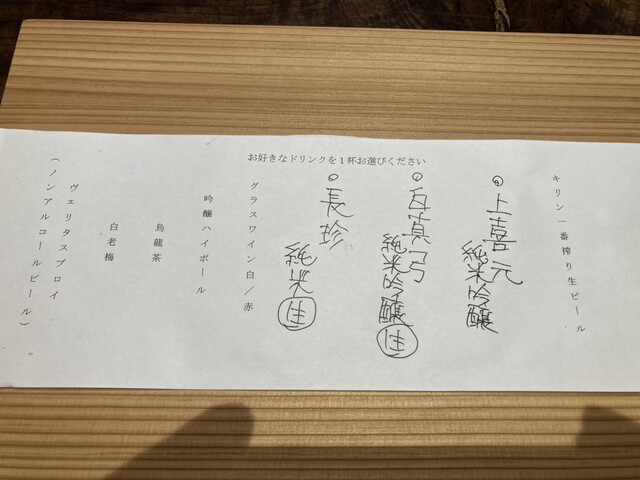 お好きなドリンクを1杯お選びください
キリン一番搾り生ビール
上喜元
純米吟醸
百真弓
純米吟醸
長珍
純米
グラスワイン白/赤
吟醸ハイボール
烏龍茶
白老梅
ヴェリタスブロイ
(ノンアルコールビール)